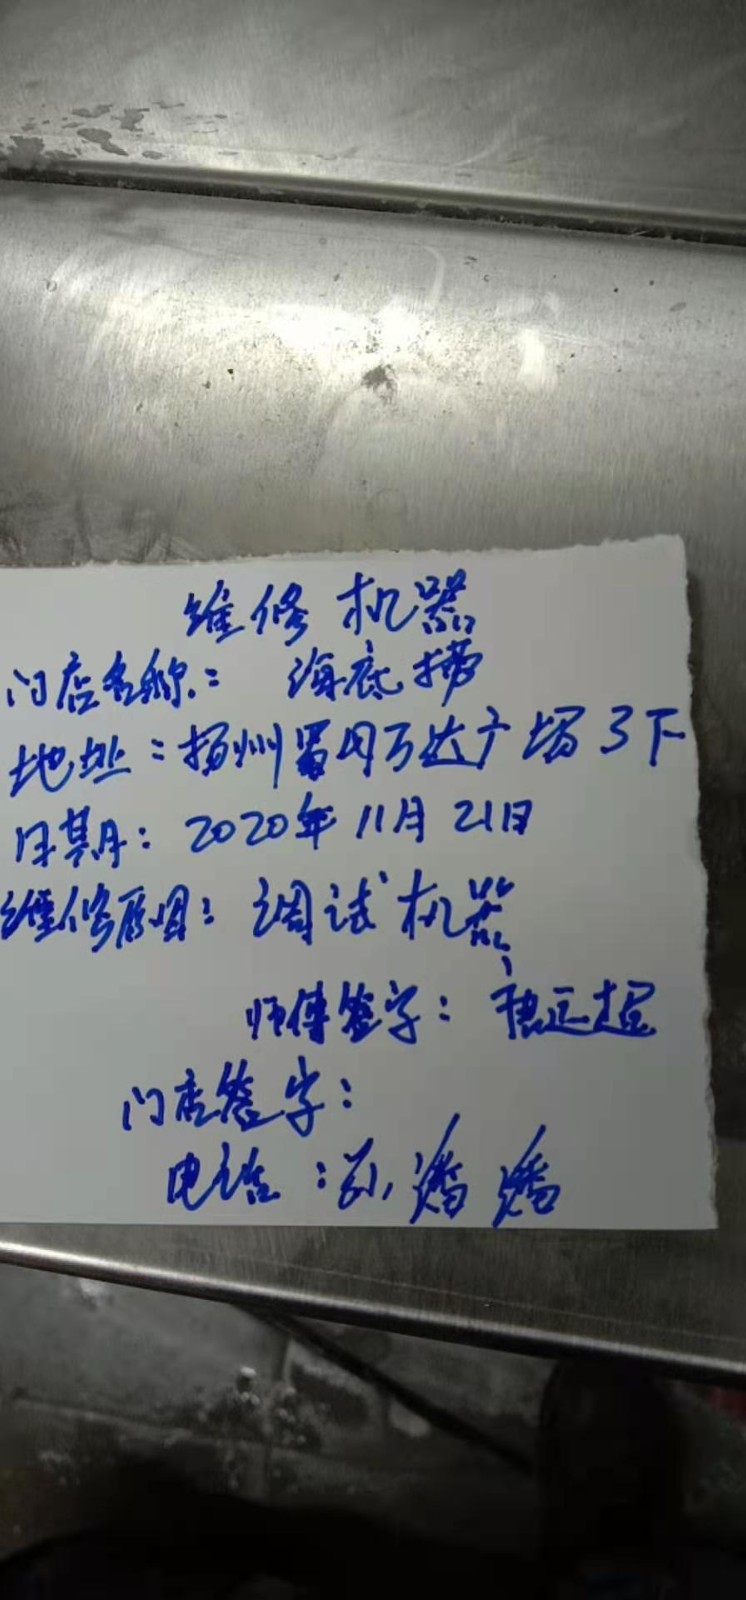 维修机器
门店名称：海底捞
地址：扬州蜀冈万达广场3下
日期：2020年11月21日
维修原因：调试机器
师傅签字：
门店签字：
电话：孙